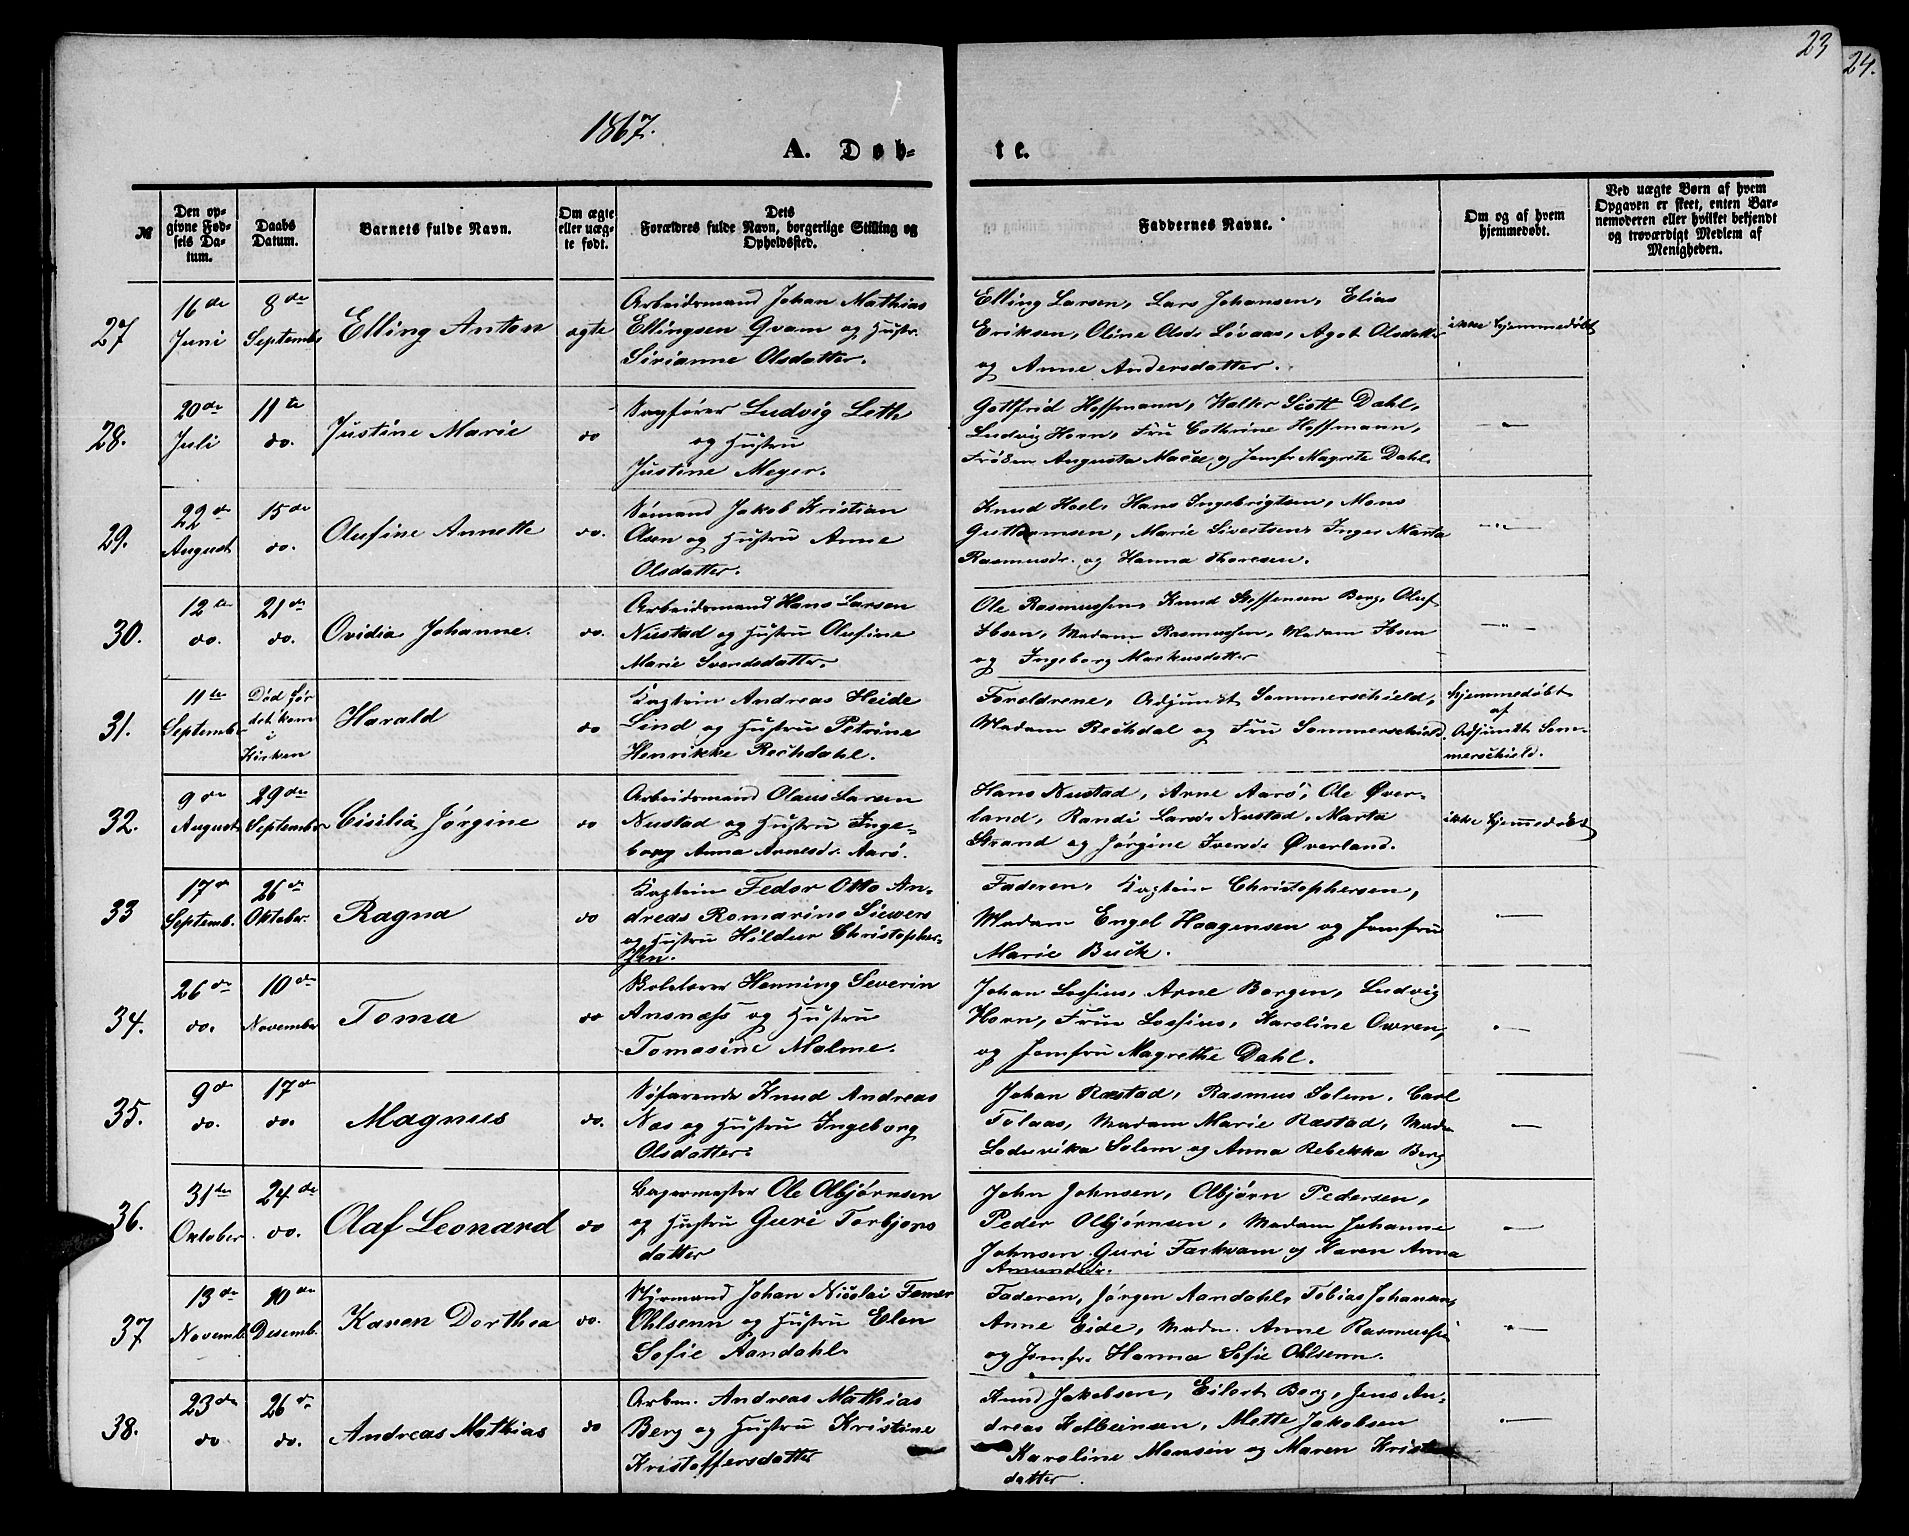 23
24.
1867.
A. Døb-
te.
№
Den op-
givne Fød-
sels Da-
tum.
Daabs
Datum.
Barnets fulde Navn.
Om ægte
eller uæg-
te født.
Dets
Forældres fulde Navn, borgerlige Stilling og
Opholdssted.
Faddernes Navne.
Om og af hvem
hjemmedøbt.
Ved uægte Børn af hvem
Opgaven er skeet, enten Bar-
nemoderen eller hvilket bekjendt
og troværdigt Medlem af
Menigheden.
27
16de
Juni
8de
Septembr
Elling Anton
ægte
Arbeidsmand Johan Mathias
Ellingsen Qvam og Hustr.
Sirianne Olsdatter.
Elling Larsen, Lars Johansen, Elias
Eriksen, Oline Olsdr Løvaas, Aget Olsdatter
og Anne Andersdatter.
ikke hjemmedøbt
28.
20de
Juli
11te
do.
Justine Marie
do
Sagfører Ludvig Leth
og Hustru
Justine Meyer.
Gottfried Hoffmann, Walter Scott Dahl,
Ludvig Horn, Fru Cathrine Hoffmann,
Frøken Augusta og Jomfr Magrete Dahl.
—"—
29.
22de
August
15de
do.
Olufine Annette
do.
Sømand Jakob Kristian
Olsen og Hustru Anne
Olsdatter.
Knud Hoel, Hans Ingebrigtsen, Mons
Guttormsen, Marie Sivertsen, Inger Marta
Rasmusdr. og Hanna Thoresen.
—"—
30.
12te
do.
21de
do.
Ovidia Johanne.
do.
Arbeidsmand Hans Larsen
Nustad og Hustru Olufine
Marie Svendsdatter.
Ole Rasmussen, Knud Steffensen Berg, Oluf
Ibsen, Madam Rasmussen, Madam Ibsen
og Ingeborg Markusdatter
—"—
31.
11te
September
Død før
det kom
i
Kirken
Harald
do
Kaptein Andreas Heide
Lind og Hustru Petrine
Henrikke Rechdahl.
Foreldrene, Adjunkt Sommerschield,
Madam Rechdal og Fru Sommerschield.
hjemmedøbt
af
Adjunkt Som-
merschield.
32.
9de
August
29de
September
Cisilia Jørgine
do
Arbeidsmand Olaus Larsen
Nustad og Hustru Inge-
borg Anna Arnesdr. Aarø.
Hans Nustad, Arne Aarø, Ole Øver-
land, Randi Larsdr Nustad, Marta
Strand og Jørgine Iversdr Øverland.
ikke hjemmedøbt
33
17de
Septemb.
26de
Oktober.
Ragna
do
Kaptein Fedor Otto An-
dreas Romarino Siewers
og Hustru Hildur Christopher-
sen.
Faderen, Kaptein Christophersen,
Madam Engel Haagensen og Jomfru
Marie Buck.
—
34.
26de
do.
10de
November
Toma
do
Henning Severin
Ansnæss og Hustru
Tomasine Malme.
Johan Lossius, Arne Borgen, Ludvig
Horn, Frue Lossius, Karoline Owren,
og Jomfru Magrethe Dahl.
—
35.
9de
do.
17de
do.
Magnus
do.
Søfarende Knud Andreas
Næs og Hustru Ingeborg
Olsdatter.
Johan Ræstad, Rasmus Solem, Carl
Tolaas, Madam Marie Ræstad, Madm
Lodovika Solem og Anna Rebekka Berg
—
36.
31te
Oktober
24de
do.
Olaf Leonard
do
Bagermester Ole Olbjørnsen
og Hustru Guri Torbjørns
datter
John Johnsen, Olbjørn Pedersen,
Peder Olbjørnsen, Madam Johanne
Johnsen, Guri Farkvam og Karen Anna
Amundsdr.
—
37
13de
Novemb.
10de
Desemb.
Karen Dorthea
do.
Styrmand Johan Nicolai Femer
Ohlsenn og Hustru Elen
Sofie Aandahl.
Faderen, Jørgen Aandahl, Tobias Johansen,
Anne Eide, Madm. Anne Rasmussen
og Jomfr. Hanna Sofie Ohlsenn.
—
38.
23de
do
26de
do.
Andreas Mathias
do
Arbm. Andreas Mathias
Berg og Hustru Kristine
Kristoffersdatter
Knud Jakobsen, Eilert Berg, Jens An-
dreas Kolbeinsen, Mette Jakobsen
Karoline Monsen og Maren Krist
datter.
—